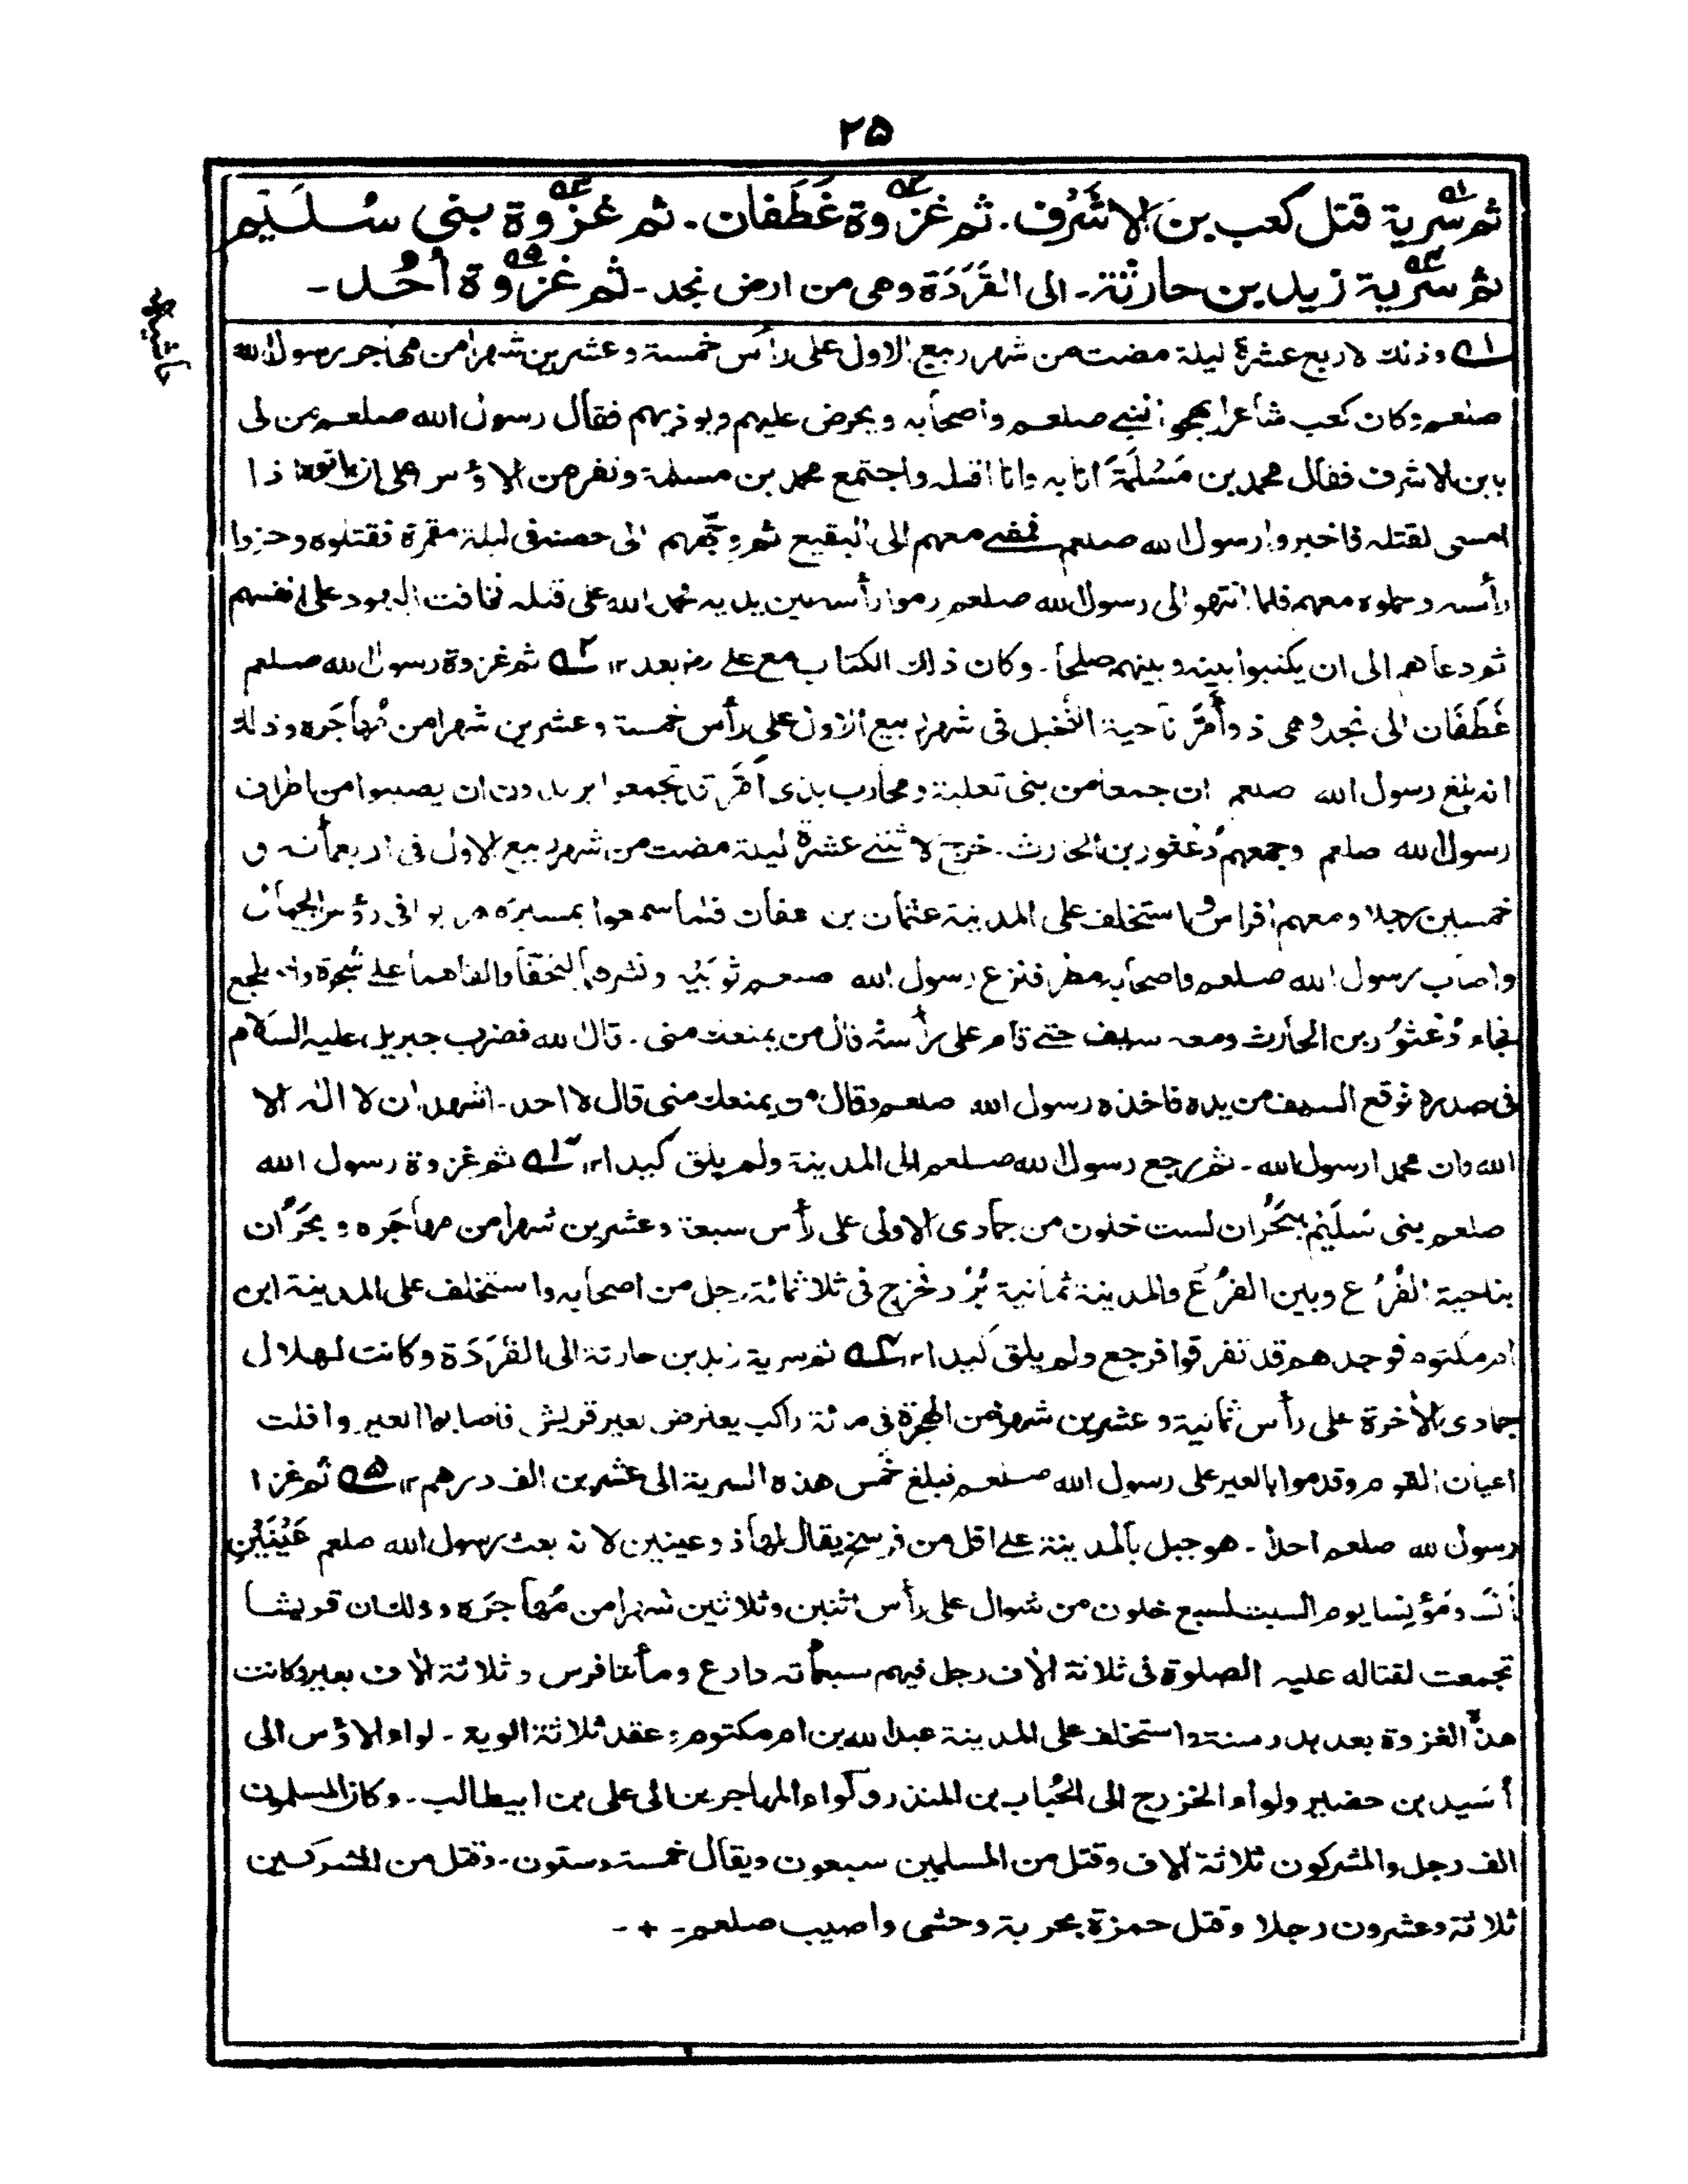 ۲۵
ثم سرية قتل كعب بن الاشرف۔ ثم غزوة غَطَفان۔ ثم غزوة بنی سُلَیم
ثم سرية زيد بن حارثة۔ الی القَرَدَة وهی من ارض نجد۔ ثم غزوة أُحُد۔
حاشیہ
۱ وذلك لاربع عشرة ليلة مضت من شهر ربيع الاول علی رأس خمسة وعشرين شهرا من مهاجر رسول الله
صلعم وكان كعب شاعرا يهجو النبی صلعم واصحابه ويحرض عليهم ويوذيهم فقال رسول الله صلعم من لی
بابن الاشرف فقال محمد بن مَسْلَمَة انا به وانا اقتله واجتمع محمد بن مسلمة ونفر من الاوس علی ان ياتوه اذا
امسی لقتله فاخبروا رسول الله صلعم فمضی معهم الی البقيع ثم وجّههم الی حصنه فی ليلة مقمرة فقتلوه وحزوا
رأسه وحملوه معهم فلما انتهو الی رسول الله صلعم رموا رأسه بين يديه فحمد الله علی قتله فخافت اليهود علی انفسهم
ثم دعاهم الی ان يكتبوا بينه وبينهم صلحا۔ وكان ذلك الكتاب مع علی رض بعد ۱۲ ۲ ثم غزوة رسول الله صلعم
غَطَفَان الی نجد وهی ذو أَمَرّ ناحية النخيل فی شهر ربيع الاول علی رأس خمسة وعشرين شهرا من مُهاجَره وذلك
انه بلغ رسول الله صلعم ان جمعا من بنی ثعلبة ومحارب بذی أَمَرّ قد تجمعوا يريدون ان يصيبوا من اطراف
رسول الله صلعم وجمعهم دُعْثور بن الحارث۔ خرج لاثنتے عشرة ليلة مضت من شهر ربيع الاول فی اربعمائة و
خمسين رجلا ومعهم افراس واستخلف علی المدينة عثمان بن عفان فلما سمعوا بمسيره هربوا فی رؤس الجبال
واصاب رسول الله صلعم واصحابه مطر فنزع رسول الله صلعم ثوبَيْه ونشرهما ليخفّا والقاهما علی شجرة واضطجع
فجاء دُعْثُور بن الحارث ومعه سيف حتے قام علی رأسه قال من يمنعك منی۔ قال الله فضرب جبريل عليه السلام
فی صدره فوقع السيف من يده فاخذه رسول الله صلعم وقال من يمنعك منی قال لا احد۔ اشهد ان لا اله الا
الله وان محمدا رسول الله۔ ثم رجع رسول الله صلعم الی المدينة ولم يلق كيدا ۱۲ ۳ ثم غزوة رسول الله
صلعم بنی سُلَيْم ببُحْران لست خلون من جمادی الاولی علی رأس سبعة وعشرين شهرا من مهاجَره وبحران
بناحية الفُرُع وبين الفُرُع والمدينة ثمانية بُرُد فخرج فی ثلاثمائة رجل من اصحابه واستخلف علی المدينة ابن
ام مكتوم فوجدهم قد تفرقوا فرجع ولم يلق كيدا ۱۲ ۴ ثم سرية زيد بن حارثة الی القَرَدَة وكانت لهلال
جمادی الأخرة علی رأس ثمانية وعشرين شهرا من الهجرة فی مائة راكب يعترض بعير قريش فاصابوا العير وافلت
اعيان القوم وقدموا بالعير علی رسول الله صلعم فبلغ خُمس هذه السرية الی عشرين الف درهم ۱۲ ۵ ثم غزا
رسول لله صلعم احدا۔ هو جبل بالمدينة علی اقل من فرسخ يقال لها ذو عينين لانه بعث رسول الله صلعم عَيْنَيْنِ
أَنَسَ ومُؤنِسا يوم السبت لسبع خلون من شوال علی رأس اثنين وثلاثين شهرا من مُهاجَره وذلك ان قريشا
تجمعت لقتاله عليه الصلوة فی ثلاثة الاف رجل فيهم سبعمائة دارع ومأئتا فرس وثلاثة الاف بعير وكانت
هذه الغزوة بعد بدر سنة واستخلف علی المدينة عبد الله بن ام مكتوم وعقد ثلاثة الوية۔ لواء الاوس الی
أسَيد بن حضير ولواء الخزرج الی الحُباب بن المنذر ولواء المهاجرين الی علی بن ابيطالب۔ وكان المسلمون
الف رجل والمشركون ثلاثة الاف وقتل من المسلمين سبعون ويقال خمسة وستون۔ وقتل من المشركين
ثلاثة وعشرون رجلا وقتل حمزة بحربة وحشی واصيب صلعم۔ + ۔